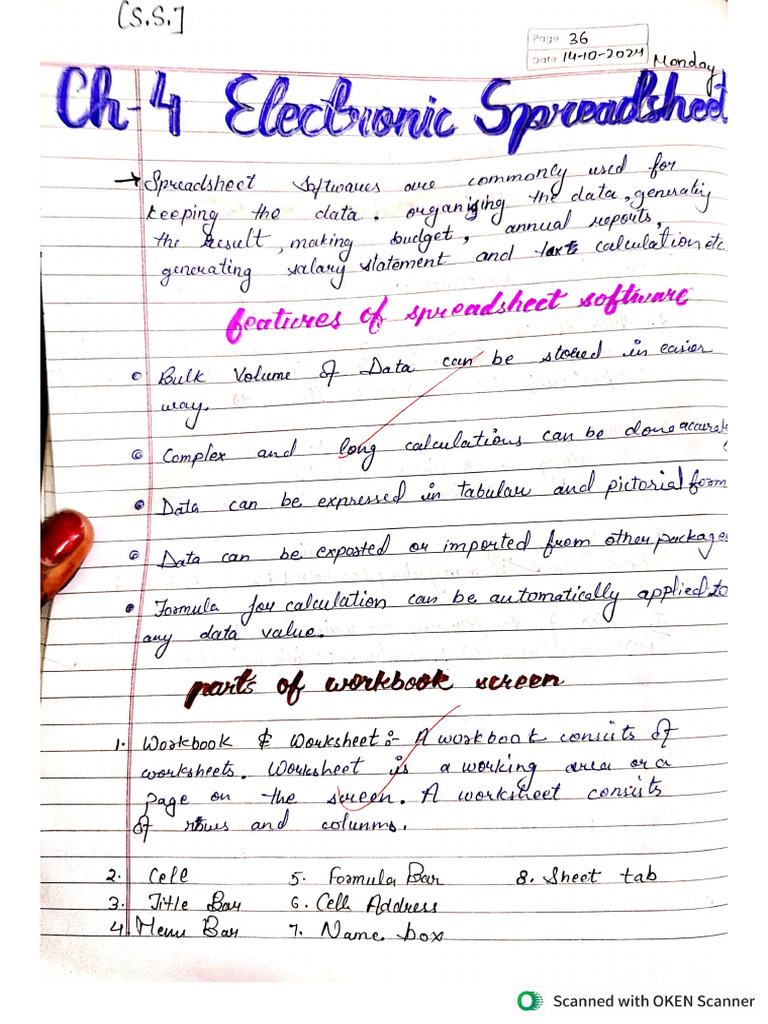 [S.S.]
Page 36
Date 14-10-2024 Monday
Ch-4 Electronic Spreadsheet
→ Spreadsheet softwares are commonly used for
keeping the data, organising the data, generatiy
the Result, making budget, annual reports,
generating salary statement and taxes calculation etc
features of spreadsheet software
• Bulk Volume of Data can be stored in easier
way.
• Complex and long calculations can be done accurate
• Data can be expressed in tabular and pictorial form
• Data can be exposted or imported from other package
• Formula for calculation can be automatically applied to
any data value.
parts of workbook screen
1. Workbook & Worksheet:- A workbook consists of
worksheets. Worksheet is a working area or a
page on the screen. A worksheet consists
of rows and colunms.
2. Cell 5. Formula Bar 8. Sheet tab
3. Title Bar 6. Cell Address
4. Menu Bar 7. Name box
Scanned with OKEN Scanner